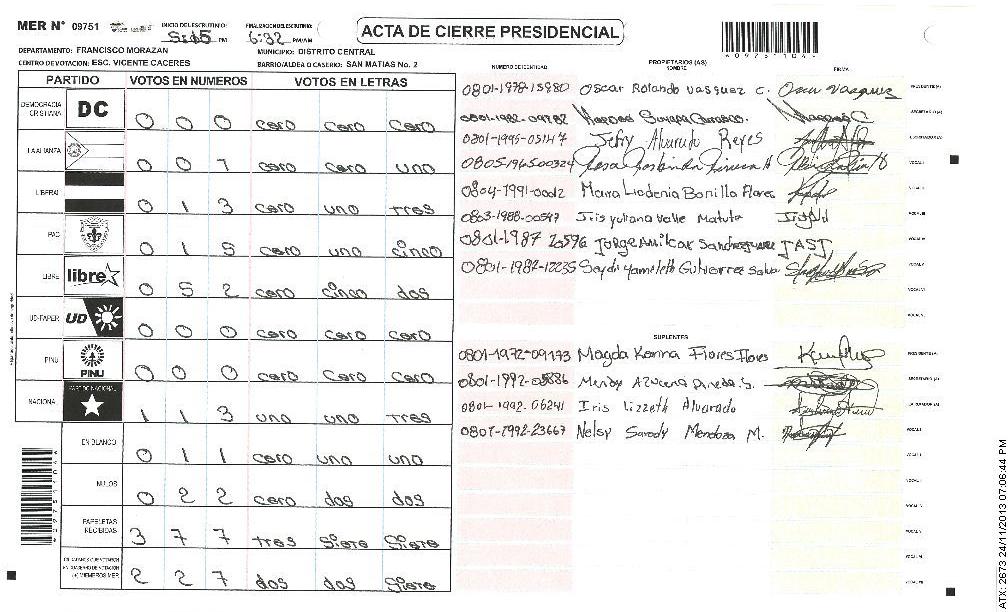 MER N° 09751
INICIO DE ESCRUTINIO: 5:15 PM
FINALIZACION DE ESCRUTINIO: 6:32 PM/AM
ACTA DE CIERRE PRESIDENCIAL
DEPARTAMENTO: FRANCISCO MORAZAN
MUNICIPIO: DISTRITO CENTRAL
CENTRO DE VOTACION: ESC. VICENTE CACERES
BARRIO/ALDEA O CASERIO: SAN MATIAS No. 2
PARTIDO VOTOS EN NUMEROS VOTOS EN LETRAS
DEMOCRACIA CRISTIANA DC 0 0 0 cero cero cero
LA ALIANZA 0 0 1 cero cero uno
LIBERAL 0 1 3 cero uno tres
PAC 0 1 5 cero uno cinco
LIBRE libre 0 5 2 cero cinco dos
UD-FAPER UD 0 0 0 cero cero cero
PINU PINU 0 0 0 cero cero cero
NACIONAL PARTIDO NACIONAL 1 1 3 uno uno tres
EN BLANCO 0 1 1 cero uno uno
NULOS 0 2 2 cero dos dos
PAPELETAS RECIBIDAS 3 7 7 tres siete siete
2 2 7 dos dos siete
NUMERO DE IDENTIDAD
PROPIETARIOS (AS)
NOMBRE
FIRMA
0801-1978-15980 Oscar Rolando Vasquez C. Oscar Vasquez PRESIDENTE (A)
0801-1982-09782 SECRETARIO (A)
0801-1995-05147 Jefry Alvarado Reyes ESCRUTADOR (A)
0805196500324 Rosa VOCAL I
0804-1991-00012 Maira Liodenia Bonilla Flores VOCAL II
0803-1988-00547 Iris Yuliana Valle Matute VOCAL III
0801-1987 20596 Jorge Amilcar JASJ VOCAL IV
0801-1982-12235 Seydi Yamileth Gutierrez VOCAL V
VOCAL VI
VOCAL VII
SUPLENTES
0801-1972-09193 Magda Karina Flores Flores PRESIDENTE (A)
0801-1992-05886 Mendy Azucena Pineda S. SECRETARIO (A)
0801-1992-06241 Iris Lizzeth Alvarado ESCRUTADOR (A)
0801-1992-23667 Nelsy Sarody Mendoza M. VOCAL I
ATX: 2673 24/11/2013 07:06:44 PM